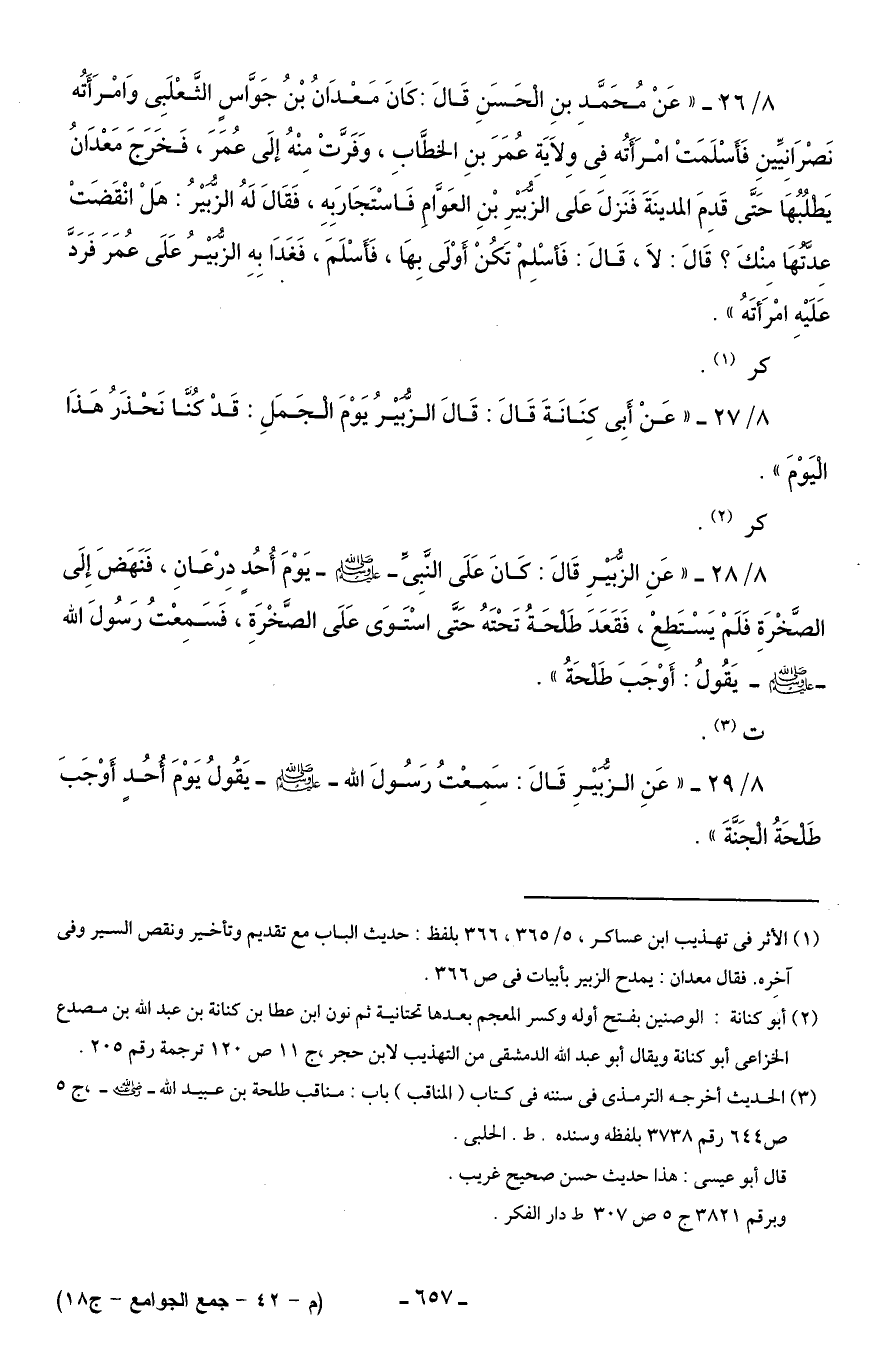 ٢٦/٨ ـ « عَنْ مُحَمَّدِ بنِ الْحَسَنِ قَالَ : كَانَ مَعْدَانُ بْنُ جَوَّاسٍ الثَّعْلَبِى وَامْرَأَتُه
نَصْرَانِيِّينِ فَأَسْلَمَتْ امْرَأَتُه فِى وِلاَيَةِ عُمَرَ بنِ الخطَّابِ ، وَفَرَّتْ مِنْهُ إلَى عُمَرَ ، فَخَرَجَ مَعْدَانُ
يَطْلُبُهَا حَتَّى قَدِمَ المدينَةَ فَنَزَلَ عَلى الزبَيْرِ بْنِ العَوَّامِ فَاسْتَجَارَبِهِ ، فَقَالَ لَهُ الزُّبَيْرُ : هَلْ انْقَضَتْ
عِدَّتُهَا مِنْكَ ؟ قَالَ : لاَ ، قَالَ : فَأسْلِمْ تَكُنْ أَوْلَى بِهَا ، فَأَسْلَمَ ، فَغَدَا بِهِ الزُّبَيْرُ عَلَى عُمَرَ فَرَدَّ
عَلَيْهِ امْرَأَتَهُ » .
كر (١) .
٢٧/٨ ـ « عَنْ أَبِى كِنَانَةَ قَالَ : قَالَ الزُّبَيْرُ يَوْمَ الْجَمَلِ : قَدْ كُنَّا نَحْذَرُ هَذَا
الْيَوْمَ » .
كر (٢) .
٢٨/٨ ـ « عَنِ الزُّبَيْرِ قَالَ : كَانَ عَلَى النَّبِىِّ ـ ﷺ ـ يَوْمَ أُحُدٍ دِرْعَانِ ، فَنَهَضَ إِلَى
الصَّخْرَةِ فَلَمْ يَسْتَطِعْ ، فَقَعَدَ طَلْحَةُ تَحْتَهُ حَتَّى اسْتَوَى عَلَى الصَّخْرَةِ ، فَسَمِعْتُ رَسُولَ الله
ـ ﷺ ـ يَقُولُ : أَوْجَبَ طَلْحَةُ » .
ت (٣) .
٢٩/٨ ـ « عَنِ الزُّبَيْرِ قَالَ : سَمِعْتُ رَسُولَ الله ـ ﷺ ـ يَقُولُ يَوْمَ أُحُدٍ أَوْجَبَ
طَلْحَةُ الْجَنَّةَ » .
(١) الأثر فى تهذيب ابن عساكر ، ٥/ ٣٦٥ ، ٣٦٦ بلفظ : حديث الباب مع تقديم وتأخير ونقص السير وفى
آخره. فقال معدان : يمدح الزبير بأبيات فى ص ٣٦٦ .
(٢) أبو كنانة : الوصنين بفتح أوله وكسر المعجم بعدها تحتانية ثم نون ابن عطا بن كنانة بن عبد الله بن مصدع
الخزاعى أبو كنانة ويقال أبو عبد الله الدمشقى من التهذيب لابن حجر ،ج ١١ ص ١٢٠ ترجمة رقم ٢٠٥ .
(٣) الحديث أخرجه الترمذى فى سننه فى كتاب ( المناقب ) باب : مناقب طلحة بن عبيد الله ـ ـ ،ج ٥
ص٦٤٤ رقم ٣٧٣٨ بلفظه وسنده . ط . الحلبى .
قال أبو عيسى : هذا حديث حسن صحيح غريب .
وبرقم ٣٨٢١ ج ٥ ص ٣٠٧ ط دار الفكر .
ـ ٦٥٧ ـ (م – ٤٢ – جمع الجوامع – ج١٨)